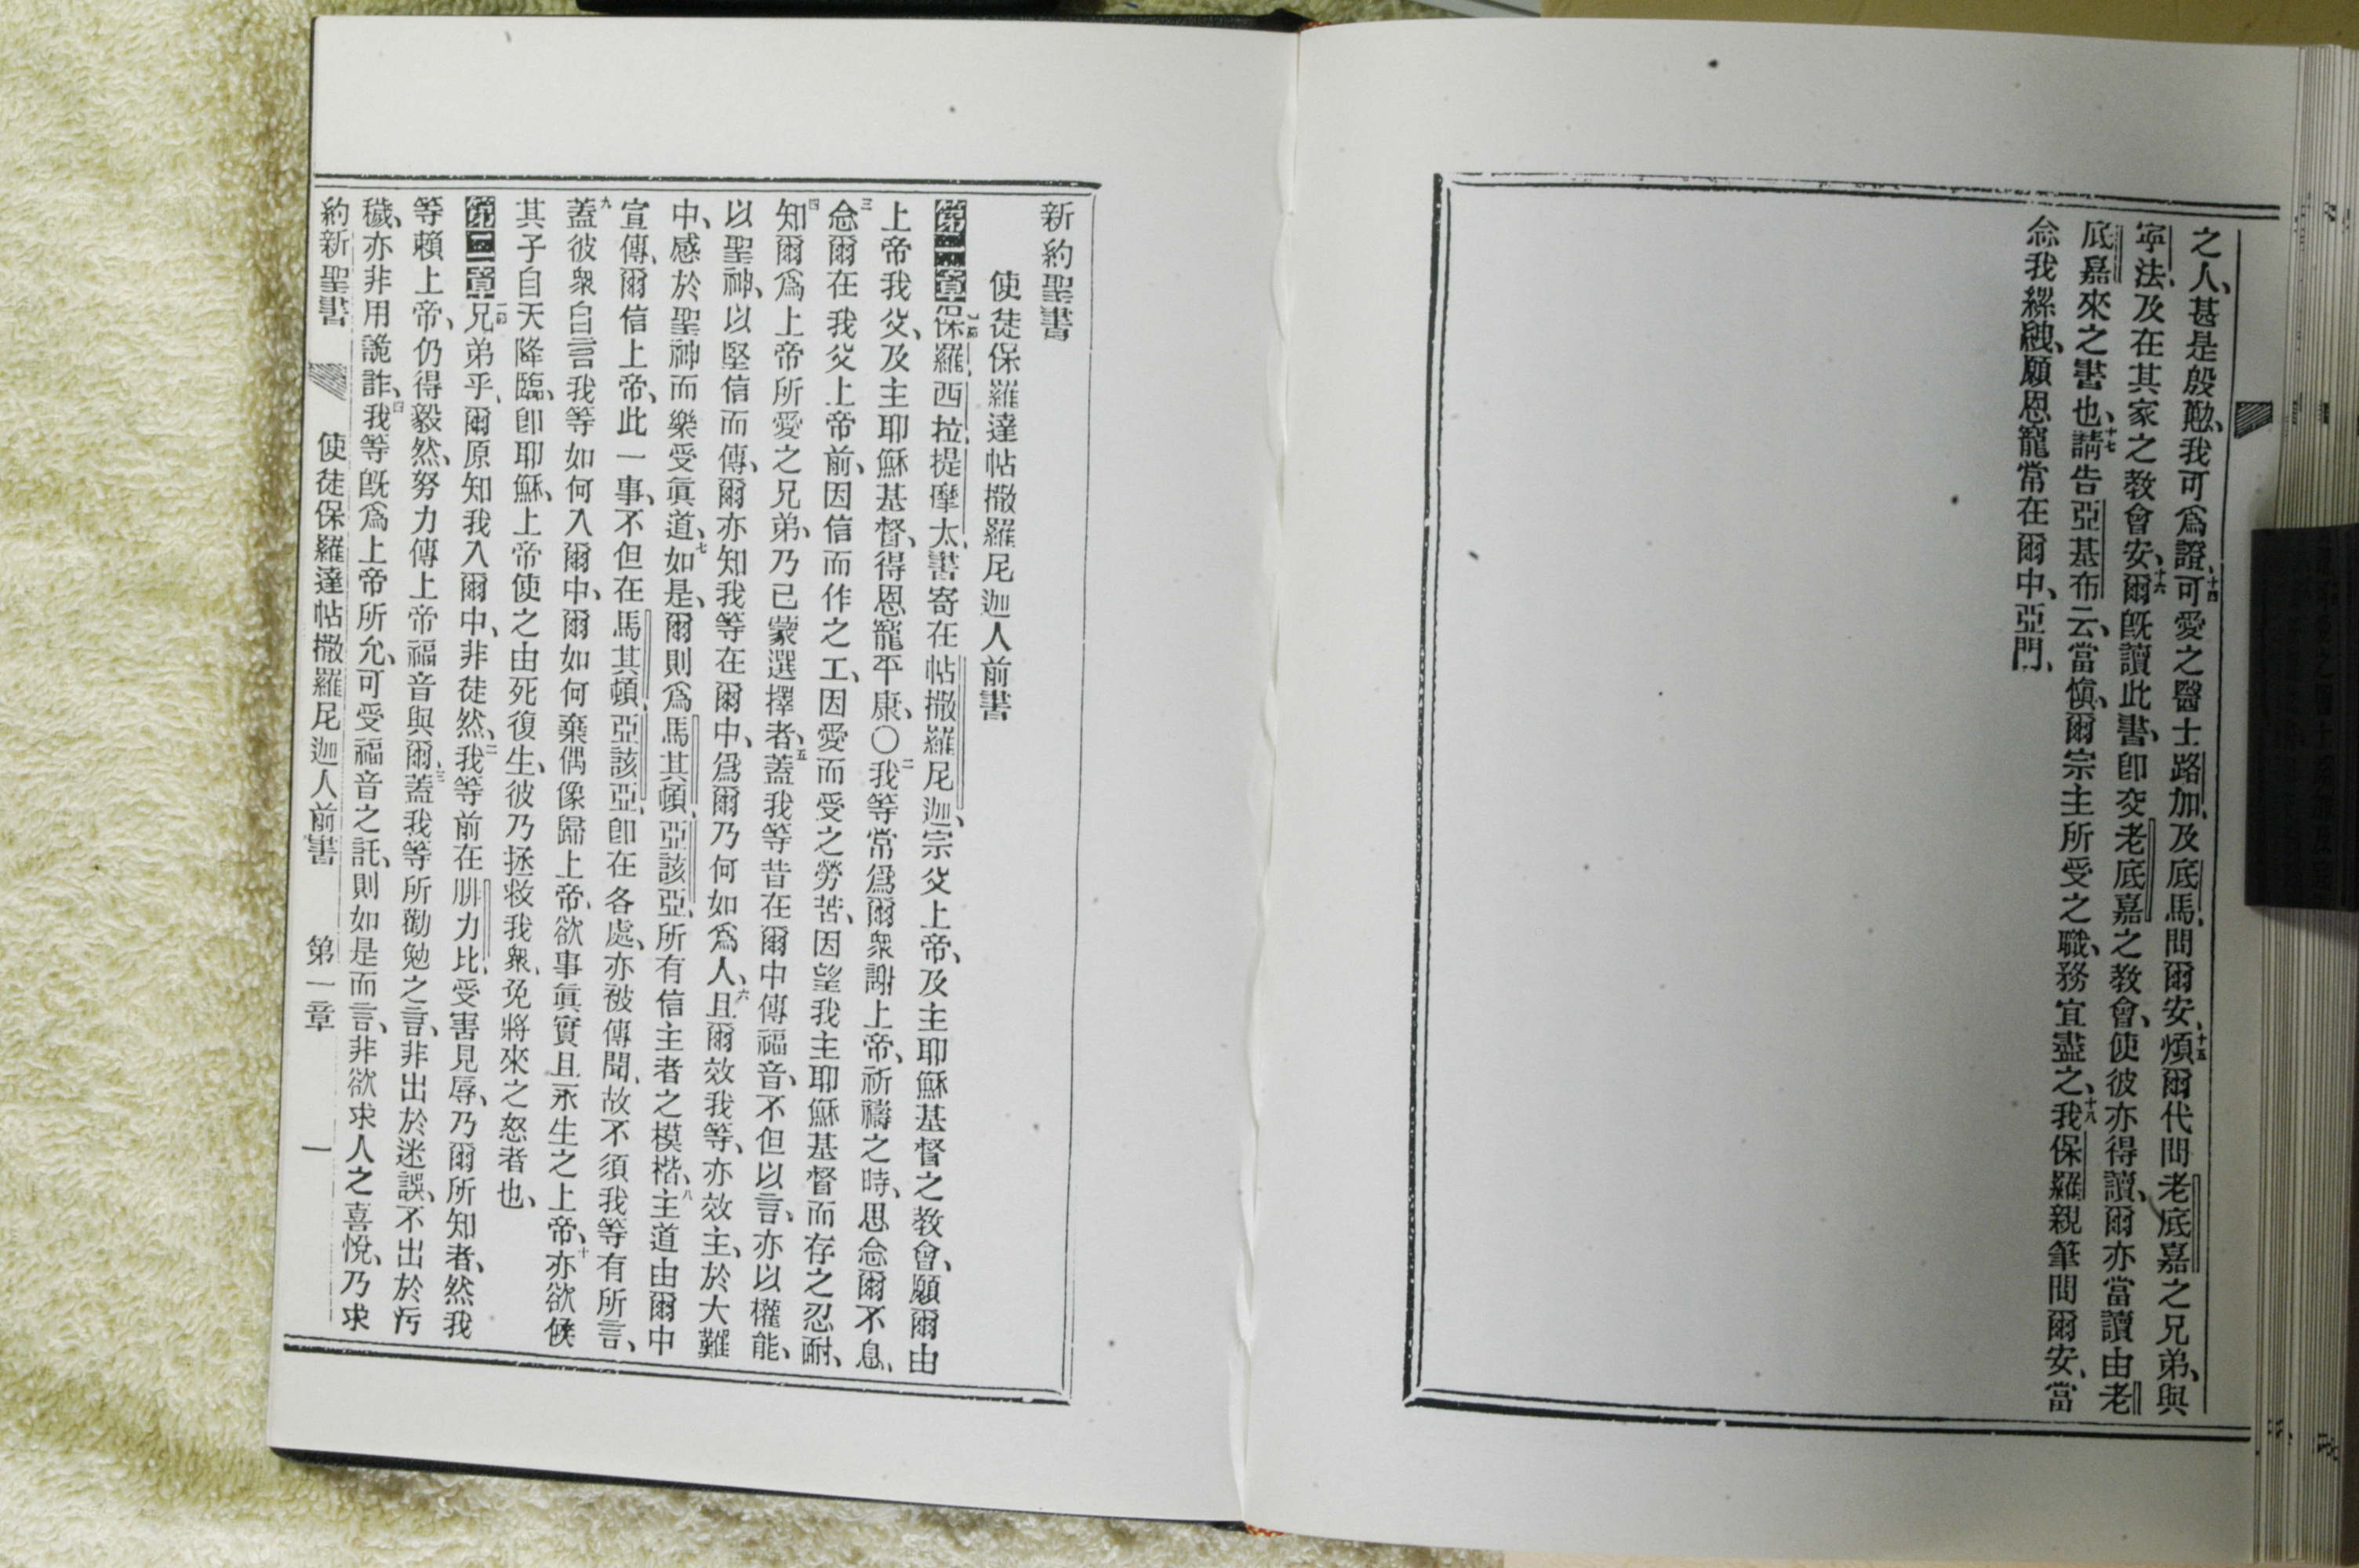 之人、甚是殷勤、我可爲證、十四可愛之醫士路加、及底馬、問爾安、十五煩爾代問老底嘉之兄弟、與
寧法、及在其家之教會安、十六爾既讀此書、即交老底嘉之教會、使彼亦得讀、爾亦當讀由老
底嘉來之書也、十七請告亞基布云、當愼、爾宗主所受之職、務宜盡之、十八我保羅親筆問爾安、當
念我縲絏、願恩寵常在爾中、亞門、
新約聖書
使徒保羅達帖撒羅尼迦人前書
第一章一節保羅、西拉、提摩太、書寄在帖撒羅尼迦、宗父上帝、及主耶穌基督之教會、願爾由
上帝我父、及主耶穌基督、得恩寵平康、○二我等常爲爾衆謝上帝、祈禱之時、思念爾不息、
三念爾在我父上帝前、因信而作之工、因愛而受之勞苦、因望我主耶穌基督而存之忍耐、
四知爾爲上帝所愛之兄弟、乃已蒙選擇者、五蓋我等昔在爾中傳福音、不但以言、亦以權能、
以聖神、以堅信而傳、爾亦知我等在爾中、爲爾乃何如爲人、六且爾效我等、亦效主、於大難
中、感於聖神而樂受眞道、七如是、爾則爲馬其頓、亞該亞、所有信主者之模楷、八主道由爾中
宣傳、爾信上帝、此一事、不但在馬其頓、亞該亞、即在各處、亦被傳聞、故不須我等有所言、
九蓋彼衆自言我等如何入爾中、爾如何棄偶像歸上帝、欲事眞實且永生之上帝、十亦欲候
其子自天降臨、即耶穌、上帝使之由死復生、彼乃拯救我衆、免將來之怒者也、
第二章一節兄弟乎、爾原知我入爾中、非徒然、二我等前在腓力比、受害見辱、乃爾所知者、然我
等賴上帝、仍得毅然、努力傳上帝福音與爾、三蓋我等所勸勉之言、非出於迷誤、不出於污
穢、亦非用詭詐、四我等既爲上帝所允、可受福音之託、則如是而言、非欲求人之喜悅、乃求
約新聖書 使徒保羅達帖撒羅尼迦人前書 第一章 一